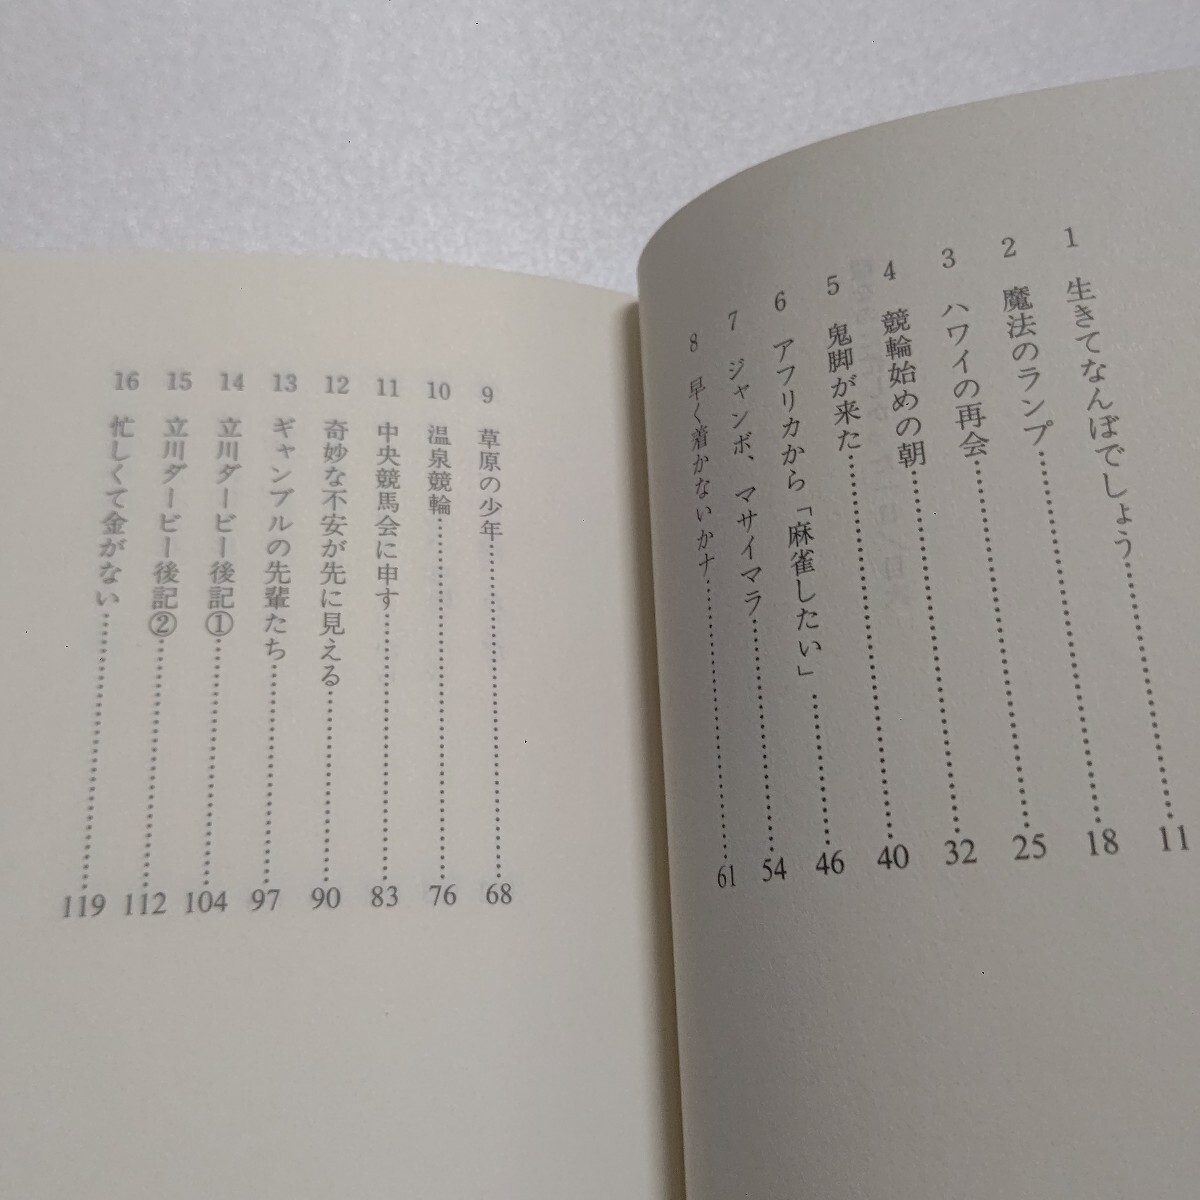 1 生きてなんぼでしょう……………11
2 魔法のランプ……………18
3 ハワイの再会……………25
4 競輪始めの朝……………32
5 鬼脚が来た……………40
6 アフリカから「麻雀したい」……………46
7 ジャンボ、マサイマラ……………54
8 早く着かないかナ……………61
9 草原の少年……………68
10 温泉競輪……………76
11 中央競馬会に申す……………83
12 奇妙な不安が先に見える……………90
13 ギャンブルの先輩たち……………97
14 立川ダービー後記①……………104
15 立川ダービー後記②……………112
16 忙しくて金がない……………119